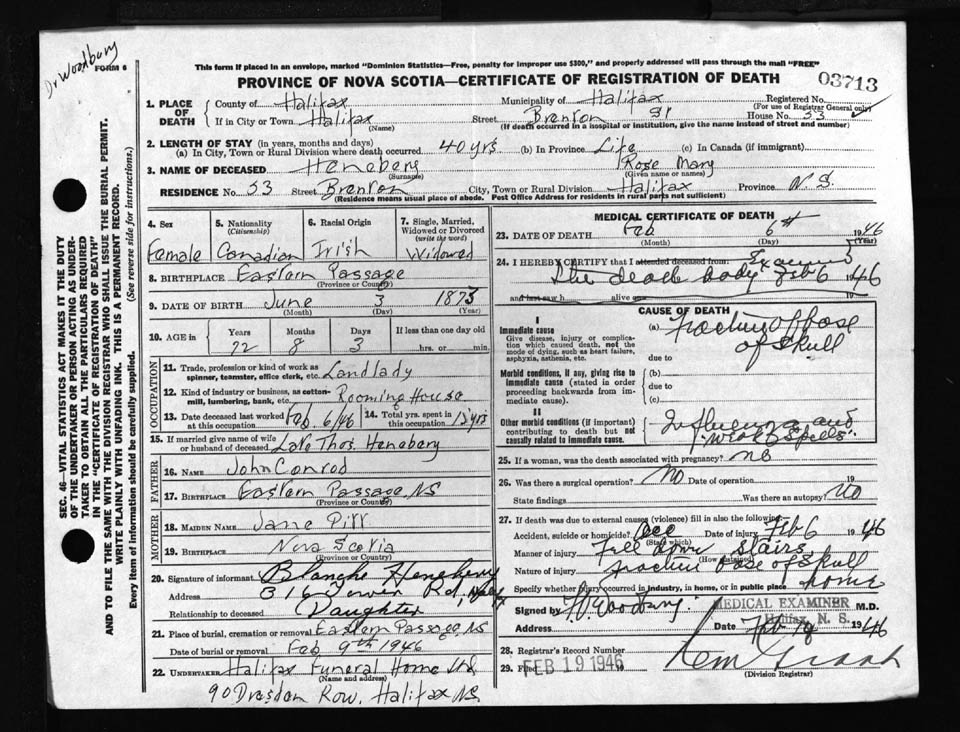 Dr Woodbury
FORM 6
This form if placed in an envelope, marked "Dominion Statistics—Free, penalty for improper use $300," and properly addressed will pass through the mail "FREE"
PROVINCE OF NOVA SCOTIA—CERTIFICATE OF REGISTRATION OF DEATH
03713
1. PLACE OF DEATH
County of Halifax Municipality of Halifax Registered No.
(For use of Registrar General only)
If in City or Town Halifax Street Brenton St House No. 53
(Name) (If death occurred in a hospital or institution, give the name instead of street and number)
2. LENGTH OF STAY (in years, months and days)
(a) In City, Town or Rural Division where death occurred 40 yrs (b) In Province Life (c) In Canada (if immigrant)
3. NAME OF DECEASED Heneberg Rose Mary
(Surname) (Given name or names)
RESIDENCE No. 53 Street Brenton City, Town or Rural Division Halifax Province N.S.
(Residence means usual place of abode. Post Office Address for residents in rural parts not sufficient)
SEC. 46—VITAL STATISTICS ACT MAKES IT THE DUTY
OF THE UNDERTAKER OR PERSON ACTING AS UNDER-
TAKER TO OBTAIN ALL THE PARTICULARS REQUIRED
IN THE "CERTIFICATE OF REGISTRATION OF DEATH"
AND TO FILE THE SAME WITH THE DIVISION REGISTRAR WHO SHALL ISSUE THE BURIAL PERMIT.
WRITE PLAINLY WITH UNFADING INK. THIS IS A PERMANENT RECORD.
Every item of information should be carefully supplied. (See reverse side for instructions.)
4. Sex 5. Nationality 6. Racial Origin 7. Single, Married, Widowed or Divorced
(Citizenship) (write the word)
Female Canadian Irish Widowed
8. BIRTHPLACE Eastern Passage
(Province or Country)
9. DATE OF BIRTH June 3 1873
(Month) (Day) (Year)
10. AGE in Years Months Days If less than one day old
72 8 3 hrs. or min.
OCCUPATION
11. Trade, profession or kind of work as spinner, teamster, office clerk, etc. Landlady
12. Kind of industry or business, as cotton-mill, lumbering, bank, etc. Rooming House
13. Date deceased last worked at this occupation Feb. 6/46 14. Total yrs. spent in this occupation 15 yrs
15. If married give name of wife or husband of deceased Late Thos. Heneberg
FATHER
16. NAME John Conrod
17. BIRTHPLACE Eastern Passage, NS
(Province or Country)
MOTHER
18. MAIDEN NAME Jane Pitt
19. BIRTHPLACE Nova Scotia
(Province or Country)
20. Signature of informant Blanche Heneberry
Address 316 Tower Rd, Hlfx
Relationship to deceased Daughter
21. Place of burial, cremation or removal Eastern Passage, NS
Date of burial or removal Feb 9th 1946
22. UNDERTAKER Halifax Funeral Home Ltd
(Name and address)
90 Dresden Row, Halifax NS.
MEDICAL CERTIFICATE OF DEATH
23. DATE OF DEATH Feb 6th 1946
(Month) (Day) (Year)
24. I HEREBY CERTIFY that I attended deceased from Examined
the dead body Feb 6 1946
and last saw h alive on 19
CAUSE OF DEATH
I
Immediate cause (a) fracture of base of skull
Give disease, injury or complication which caused death, not the mode of dying, such as heart failure, asphyxia, asthenia, etc.
due to
Morbid conditions, if any, giving rise to immediate cause (stated in order proceeding backwards from immediate cause). (b)
due to
(c)
II
Other morbid conditions (if important) contributing to death but not causally related to immediate cause. Influenza and weak spells.
25. If a woman, was the death associated with pregnancy? no
26. Was there a surgical operation? No Date of operation 19
State findings Was there an autopsy? No
27. If death was due to external causes (violence) fill in also the following:
Accident, suicide or homicide? Acc Date of injury Feb 6 1946
(State which)
Manner of injury fell down stairs
(How sustained)
Nature of injury fracture base of skull
Specify whether injury occurred in industry, in home, or in public place home
Signed by Woodbury M.D.
MEDICAL EXAMINER
Halifax, N. S.
Address Date Feb 1946
28. Registrar's Record Number
29. Filed FEB 19 1946
(Division Registrar)